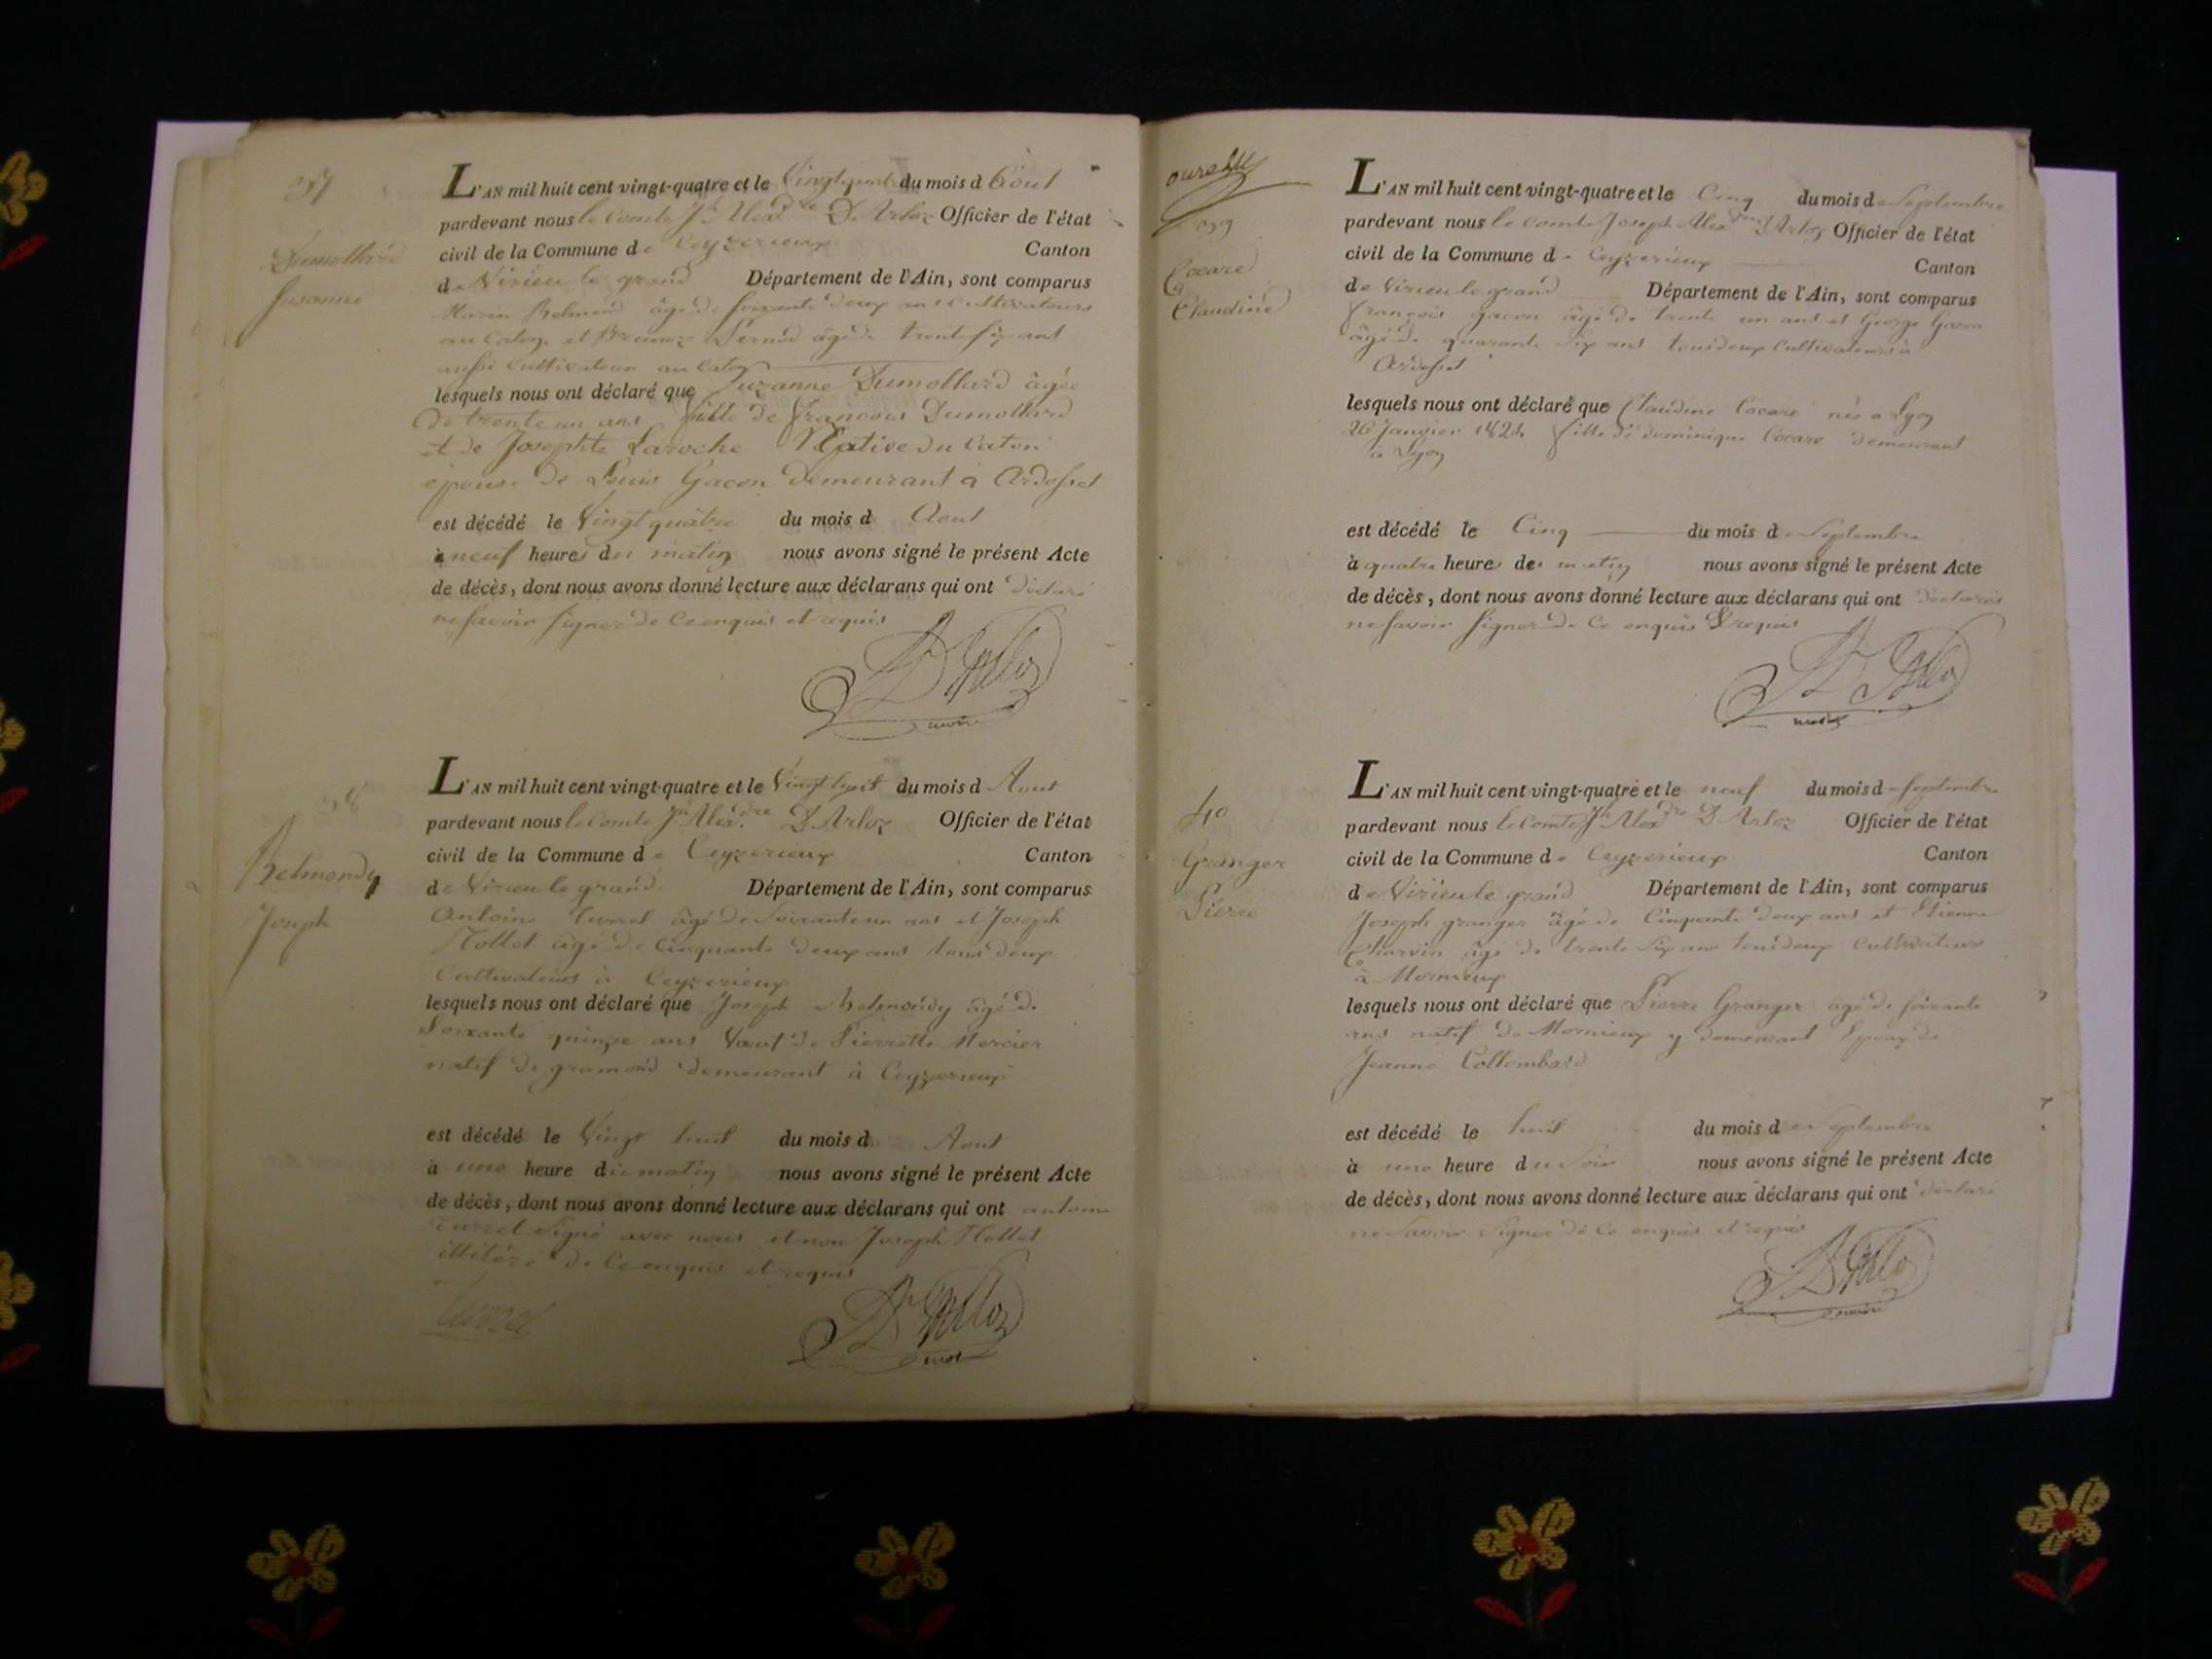 37
Dumollard
Susanne
L'AN mil huit cent vingt-quatre et le Vingt quatre du mois d Aout
pardevant nous le Comte Jh Alexdre D'Arloz Officier de l'état
civil de la Commune de Ceyzerieux Canton
de Virieu le grand Département de l'Ain, sont comparus
Marin Belmond âgé de soixante deux ans cultivateurs
au Caton et Pernod âgé de trente six ans
aussi Cultivateur au Caton
lesquels nous ont déclaré que Suzanne Dumollard âgée
de trente un ans fille de François Dumollard
et de Josephte Laroche Native du Caton
épouse de Louis Gacon demeurant à Ardosset
est décédé le Vingt quatre du mois d Aout
à neuf heures du matin nous avons signé le présent Acte
de décès, dont nous avons donné lecture aux déclarans qui ont déclaré
ne savoir signer de ce enquis et requis
D'Arloz
maire
38
Belmondy
Joseph
L'AN mil huit cent vingt-quatre et le Vingt huit du mois d Aout
pardevant nous le Comte Jh Alexdre D'Arloz Officier de l'état
civil de la Commune de Ceyzerieux Canton
de Virieu le grand Département de l'Ain, sont comparus
Antoine Turrel âgé de Soixante un ans et Joseph
Mollet âgé de Cinquante deux ans tous deux
Cultivateurs à Ceyzerieux
lesquels nous ont déclaré que Joseph Belmondy âgé de
Soixante quinze ans Veuf de Pierrette Mercier
natif de gramond demeurant à Ceyzerieux
est décédé le Vingt huit du mois d Aout
à une heure du matin nous avons signé le présent Acte
de décès, dont nous avons donné lecture aux déclarans qui ont antoine
Turrel signé avec nous et non Joseph Mollet
illitéré de ce enquis et requis
Turrel
D'Arloz
maire
39
Cocare
Claudine
L'AN mil huit cent vingt-quatre et le Cinq du mois de Septembre
pardevant nous le Comte Joseph Alexdre D'Arloz Officier de l'état
civil de la Commune de Ceyzerieux Canton
de Virieu le grand Département de l'Ain, sont comparus
François gacon âgé de trente un ans et George Gacon
âgé de quarante six ans tous deux Cultivateurs à
Ardosset
lesquels nous ont déclaré que Claudine Cocare née a Lyon
26 Janvier 1824 fille de dominique Cocare demeurant
à Lyon
est décédé le Cinq du mois de Septembre
à quatre heures de matin nous avons signé le présent Acte
de décès, dont nous avons donné lecture aux déclarans qui ont déclarés
ne savoir signer de ce enquis & requis
D'Arloz
maire
40
Granger
Pierre
L'AN mil huit cent vingt-quatre et le neuf du mois de septembre
pardevant nous le Comte Jh Alexdre D'Arloz Officier de l'état
civil de la Commune de Ceyzerieux Canton
de Virieu le grand Département de l'Ain, sont comparus
Joseph granger âgé de Cinquante deux ans et Etienne
Charvin âgé de trente six ans tous deux Cultivateurs
à Mornieux
lesquels nous ont déclaré que Pierre Granger âgé de soixante
ans natif de Mornieux y demeurant Epoux de
Jeanne Collombard
est décédé le huit du mois de Septembre
à une heure du soir nous avons signé le présent Acte
de décès, dont nous avons donné lecture aux déclarans qui ont déclaré
ne savoir signer de ce enquis et requis
D'Arloz
maire